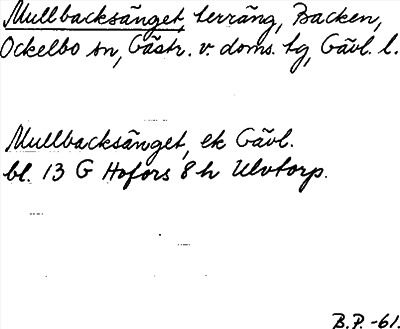 Mullbacksänget, terräng, Backen,
Ockelbo sn, Gästr. v. doms. tg, Gävl. l.
Mullbacksänget, ek Gävl.
bl. 13 G Hofors 8 h Ulvtorp.
B.P. -61.